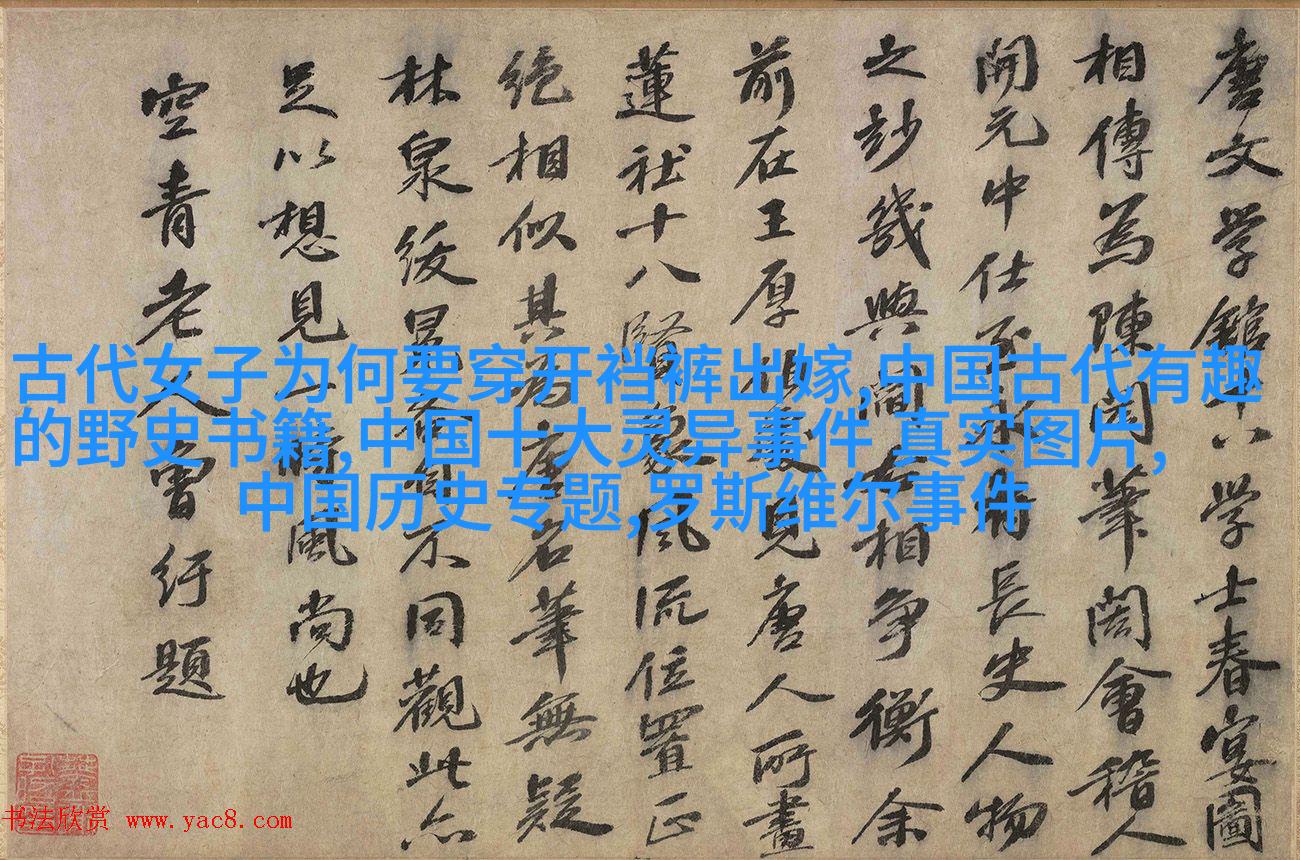 唐文学館十八学士春宴圖
相傳為陳閎筆閎會稽人
開元中仕至永府長史人物
之妙幾與閻相争衡余
前在王厚見唐人所畫
蓮社十八賢象風流位置正
绝相似其為唐名筆無疑
林泉綬冕不同觀此亦
足以想見一時風尚也
空青老人曾紆題
古代女子为何要穿开裆裤出嫁,中国古代有趣
的野史书籍,中国十大灵异事件 真实图片,
中国历史专题,罗斯维尔事件
书法欣赏 www.yac8.com